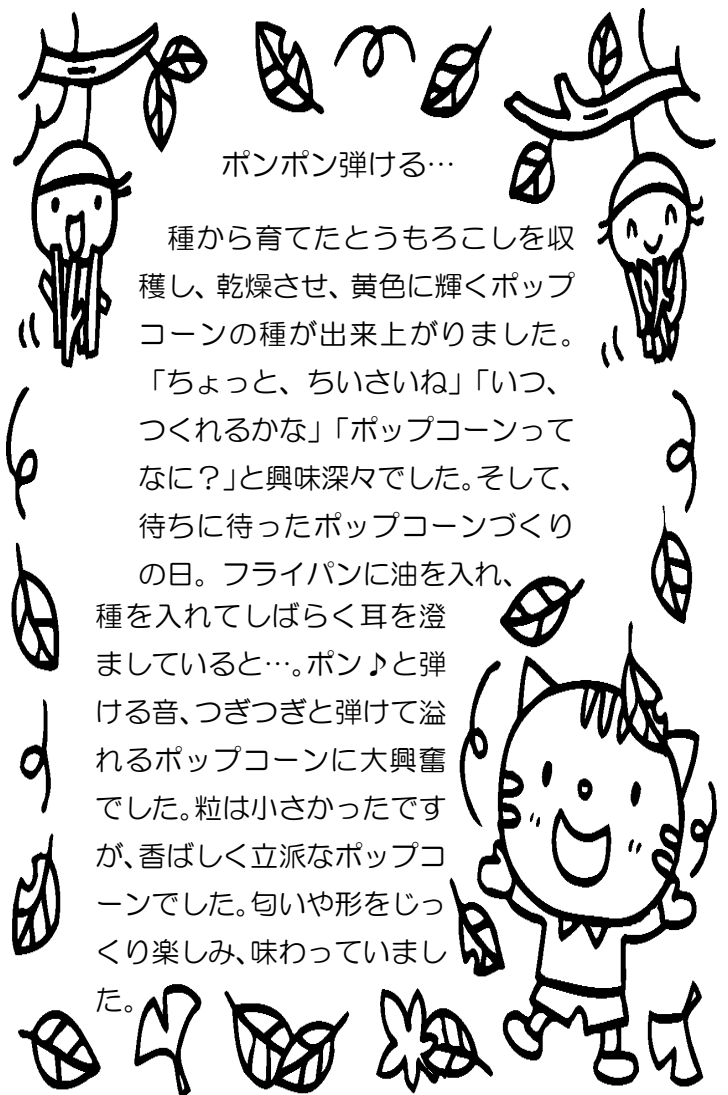 ポンポン弾ける…
種から育てたとうもろこしを収
穫し、乾燥させ、黄色に輝くポップ
コーンの種が出来上がりました。
「ちょっと、ちいさいね」「いつ、
つくれるかな」「ポップコーンって
なに？」と興味深々でした。そして、
待ちに待ったポップコーンづくり
の日。フライパンに油を入れ、
種を入れてしばらく耳を澄
ましていると…。ポン♪と弾
ける音、つぎつぎと弾けて溢
れるポップコーンに大興奮
でした。粒は小さかったです
が、香ばしく立派なポップコ
ーンでした。匂いや形をじっ
くり楽しみ、味わっていまし
た。